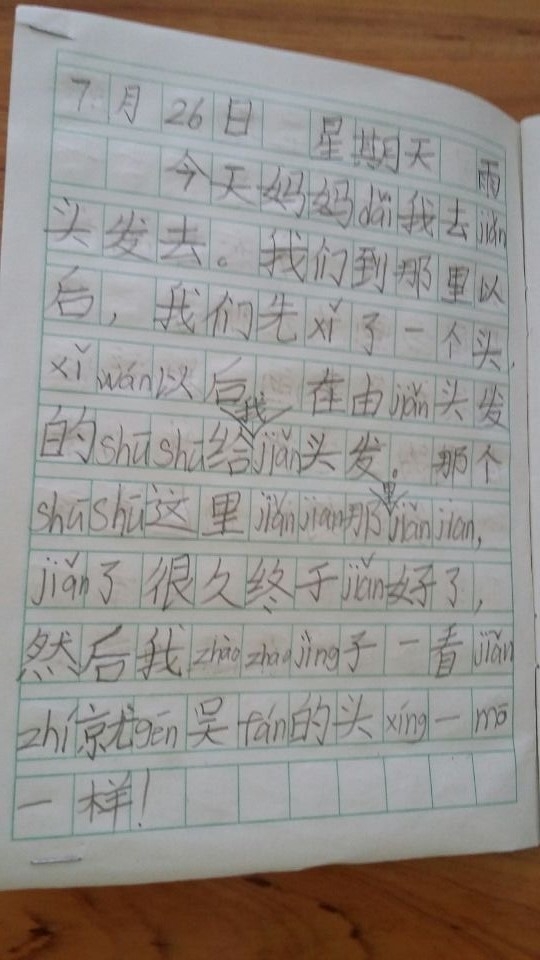 7月26日 星期天 雨
今天妈妈dǎi我去jiǎn
头发去。我们到那里以
后，我们先xǐ了一个头，
xǐ wán以后 在由jiǎn头发
的shū shū给我jiǎn头发。那个
shū shū这里jiǎn jian那里jiǎn jian，
jiǎn了很久终于jiǎn好了，
然后我zhào zhao jìng子一看jiǎn
zhí就gēn吴fán的头xíng一mō
一样！